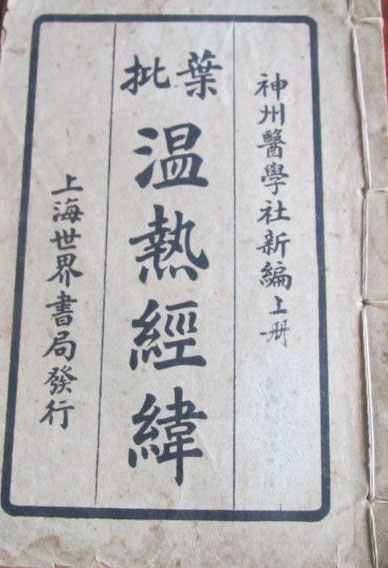 神州醫學社新編上册
葉批
温熱經緯
上海世界書局發行